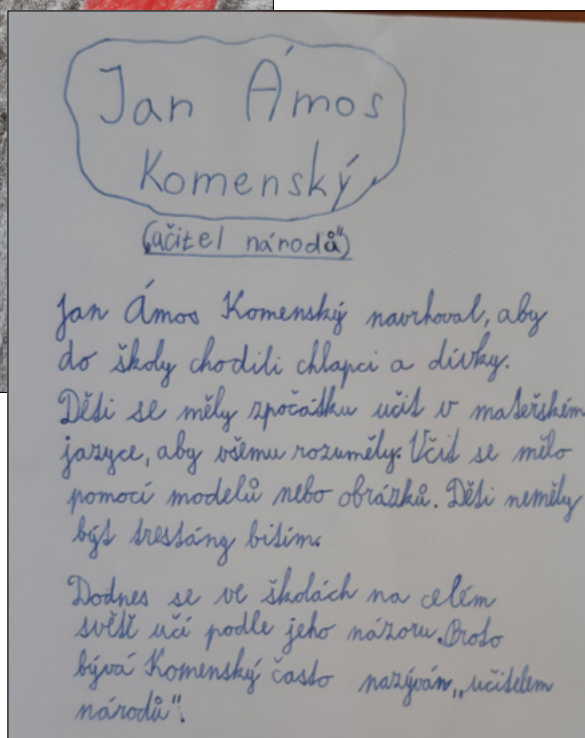 Jan Ámos
Komenský
(učitel národů")
Jan Ámos Komenský navrhoval, aby
do školy chodili chlapci a dívky.
Děti se měly zpočátku učit v mateřském
jazyce, aby všemu rozuměly. Učit se mělo
pomocí modelů nebo obrázků. Děti neměly
být trestány bitím.
Dodnes se ve školách na celém
světě učí podle jeho názoru. Proto
bývá Komenský často nazýván „učitelem
národů".